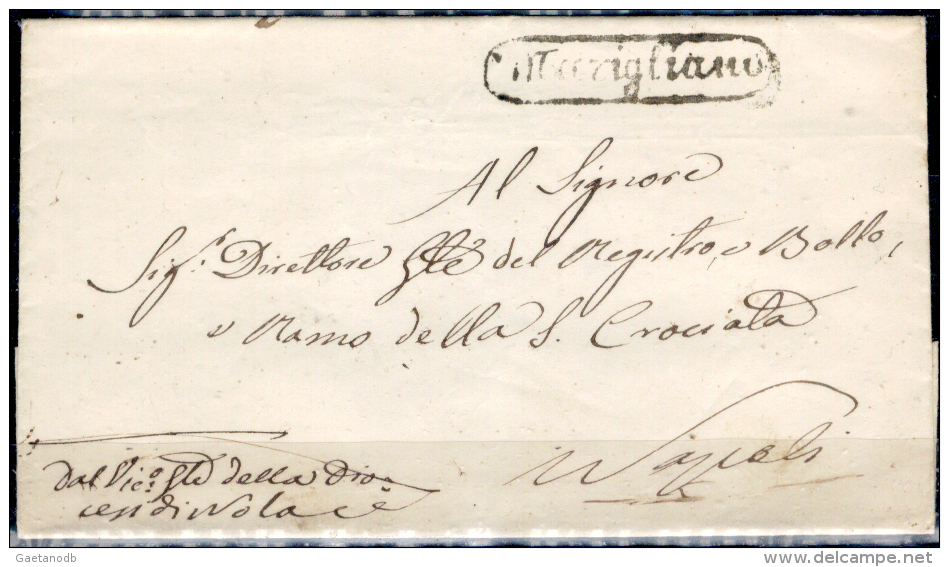 Marigliano
Al Signore
Sig.r Direttore Gle del Registro, e Bollo,
e Ramo della S. Crociata
Napoli
Dal Vic.o Gle della Dio=
cesi di Nola
Gaetanodb
delcampe.net